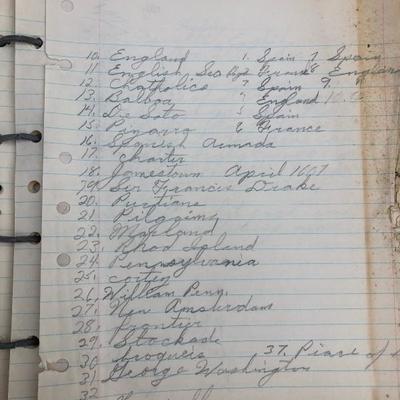 10. England 1. Spain 7 Spain
11 English Sea Dogs 2 France 8 England
12. Chatholics 3 Spain 9.
13. Balboa 4 England 10.
14. De Soto 5 Spain
15. Pinarro 6 France
16. Spanish Armada
17. Charter
18. Jamestown April 1607
19. Sir Francis Drake
20. Puritians
21. Pilggims
22. Marland
23. Rhod Island
24. Pennsylvania
25. cortez
26. William Penn.
27. New Amsterdam
28. Frontier
29. Stockade
30 Iroqueis 37.
31 George Washington
32